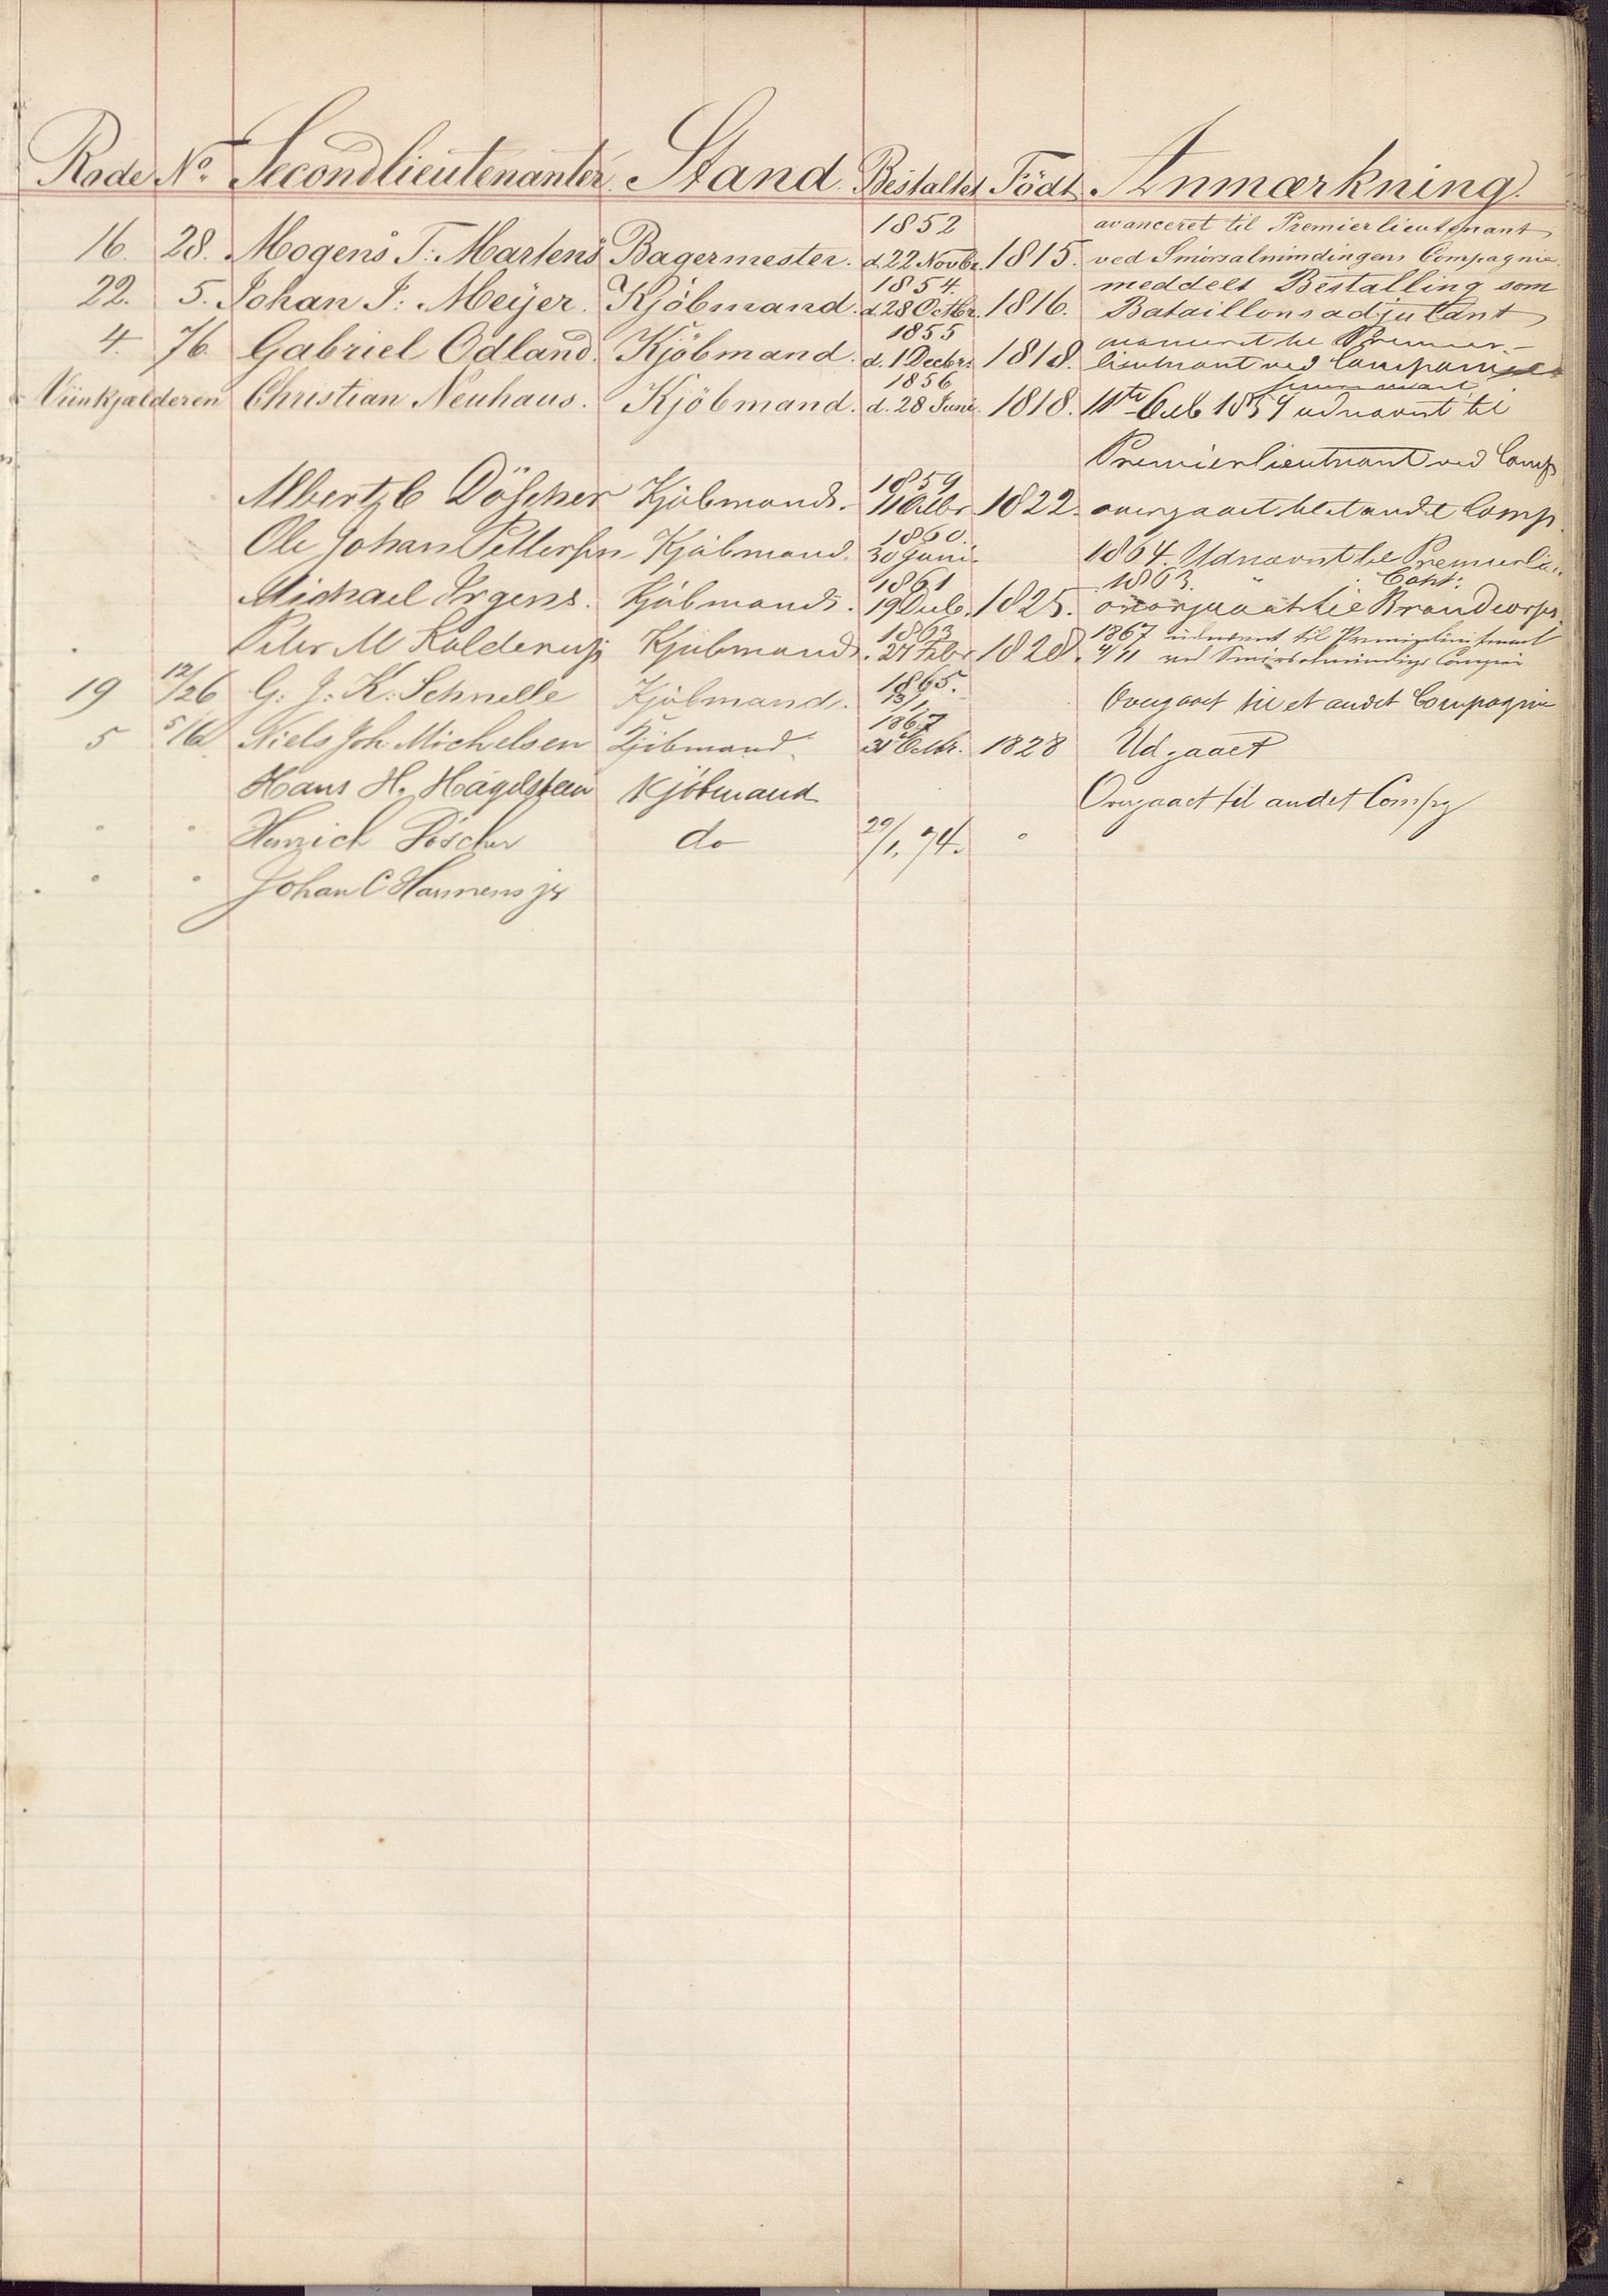 Rode No. Secondlieutenanter. Stand. Bestaltet Födt Anmærkning.
16. 28. Mogens T. Martens Bagermester. 1852 d. 22 Novbr. 1815. avanceret til Premierlieutenant
ved Smörsalmindingens Compagnie.
22. 5. Johan J: Meÿer. Kjöbmand. 1854. d. 28 Octbr. 1816. meddelt Bestalling som
Bataillonsadjutant
4. 76. Gabriel Odland. Kjöbmand. 1855 d. 1 Decbr. 1818. avanceret til Premier-
lieutnant ved Compagniet
Viinkjælderen Christian Neuhaus. Kjöbmand. 1856 d. 28 Juni. 1818. 11te 1859 udnævnt til
Premierlieutnant ved Comp
Albert C Döscher Kjöbmand. 1859 11 1822. overgaaet til et andet Comp.
Ole Johan Pettersen Kjöbmand. 1860. 30 Juni. 1864. Udnævnt til Premierli
Michael Irgens. Kjöbmand. 1861 19 1825. 1863. overgaaet til Brandcorps
Peter M Kalderup Kjöbmand. 1863 27 Febr 1828. 1867 udnævnt til Premierlieutnant
4/11 ved Smörsalmindings Compani
19 12/26 G. J. K. Schnelle Kjöbmand. 1865. 13/1 Overgaaet til et andet Compagnie
5 5/6 Niels Joh. Michelsen Kjöbmand. 1867 31 Octbr. 1828 Udgaaet
Hans H. Hagelsteen Kjöbmand Overgaaet til andet Compg
Henrich Döscher do 29/1. 74.
Johan C Harmens jr